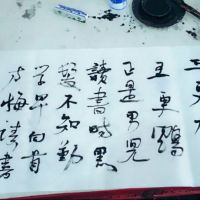 三更
五更鷄
正是男兒
讀書時黑
髮不知勤
学早白首
方悔讀書